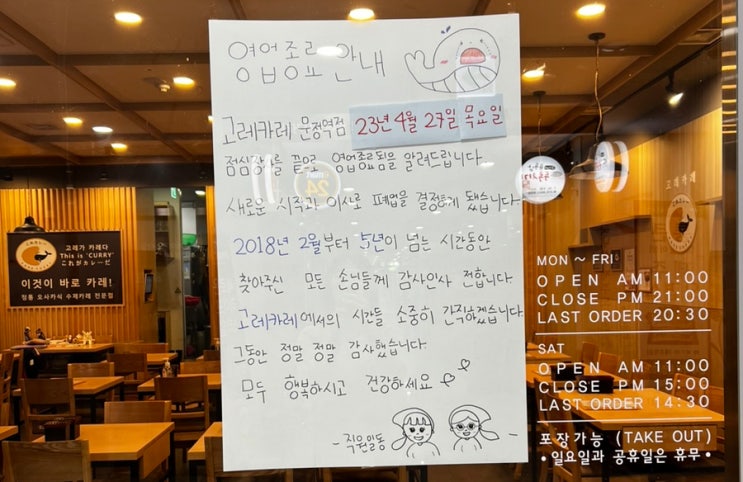 영업종료 안내
고레카레 문정역점 23년 4월 27일 목요일
점심장사를 끝으로 영업종료됨을 알려드립니다.
새로운 시작과 이사로 폐업을 결정하게 됐습니다.
2018년 2월부터 5년이 넘는 시간동안
찾아주신 모든 손님들께 감사인사 전합니다.
고레카레에서의 시간들 소중히 간직하겠습니다.
그동안 정말 정말 감사했습니다.
모두 행복하시고 건강하세요
- 직원일동 -
고래가 카레다
This is 'CURRY'
これがカレーだ
이것이 바로 카레!
정통 오사카식 수제카레 전문점
고레카레
MON ~ FRI
OPEN AM 11:00
CLOSE PM 21:00
LAST ORDER 20:30
SAT
OPEN AM 11:00
CLOSE PM 15:00
LAST ORDER 14:30
포장가능 (TAKE OUT)
• 일요일과 공휴일은 휴무 •
24